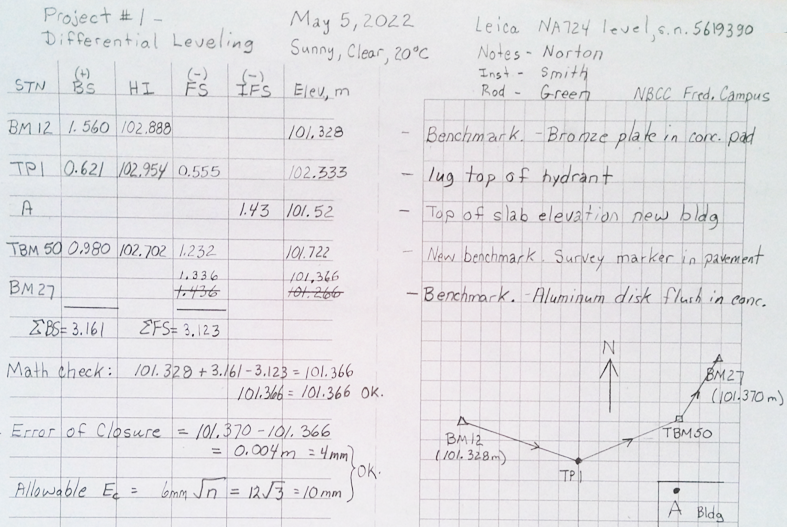 Project #1 -
Differential Leveling
May 5, 2022
Sunny, Clear, 20°C
Leica NA724 level, s.n. 5619390
Notes - Norton
Inst - Smith
Rod - Green NBCC Fred. Campus
STN (+) BS HI (-) FS (-) IFS Elev, m
BM 12 1.560 102.888 101.328 - Benchmark. - Bronze plate in conc. pad
TP1 0.621 102.954 0.555 102.333 - lug top of hydrant
A 1.43 101.52 - Top of slab elevation new bldg
TBM 50 0.980 102.702 1.232 101.722 - New benchmark. Survey marker in pavement
1.336 101.366
BM 27 1.436 101.266 - Benchmark. - Aluminum disk flush in conc.
ΣBS = 3.161 ΣFS = 3.123
Math check: 101.328 + 3.161 - 3.123 = 101.366
101.366 = 101.366 OK.
Error of Closure = 101.370 - 101.366
= 0.004m = 4mm
OK.
Allowable Ec = 6mm √n = 12√3 = 10mm
N
BM27
(101.370m)
BM12
(101.328m)
TBM50
TP1
A Bldg